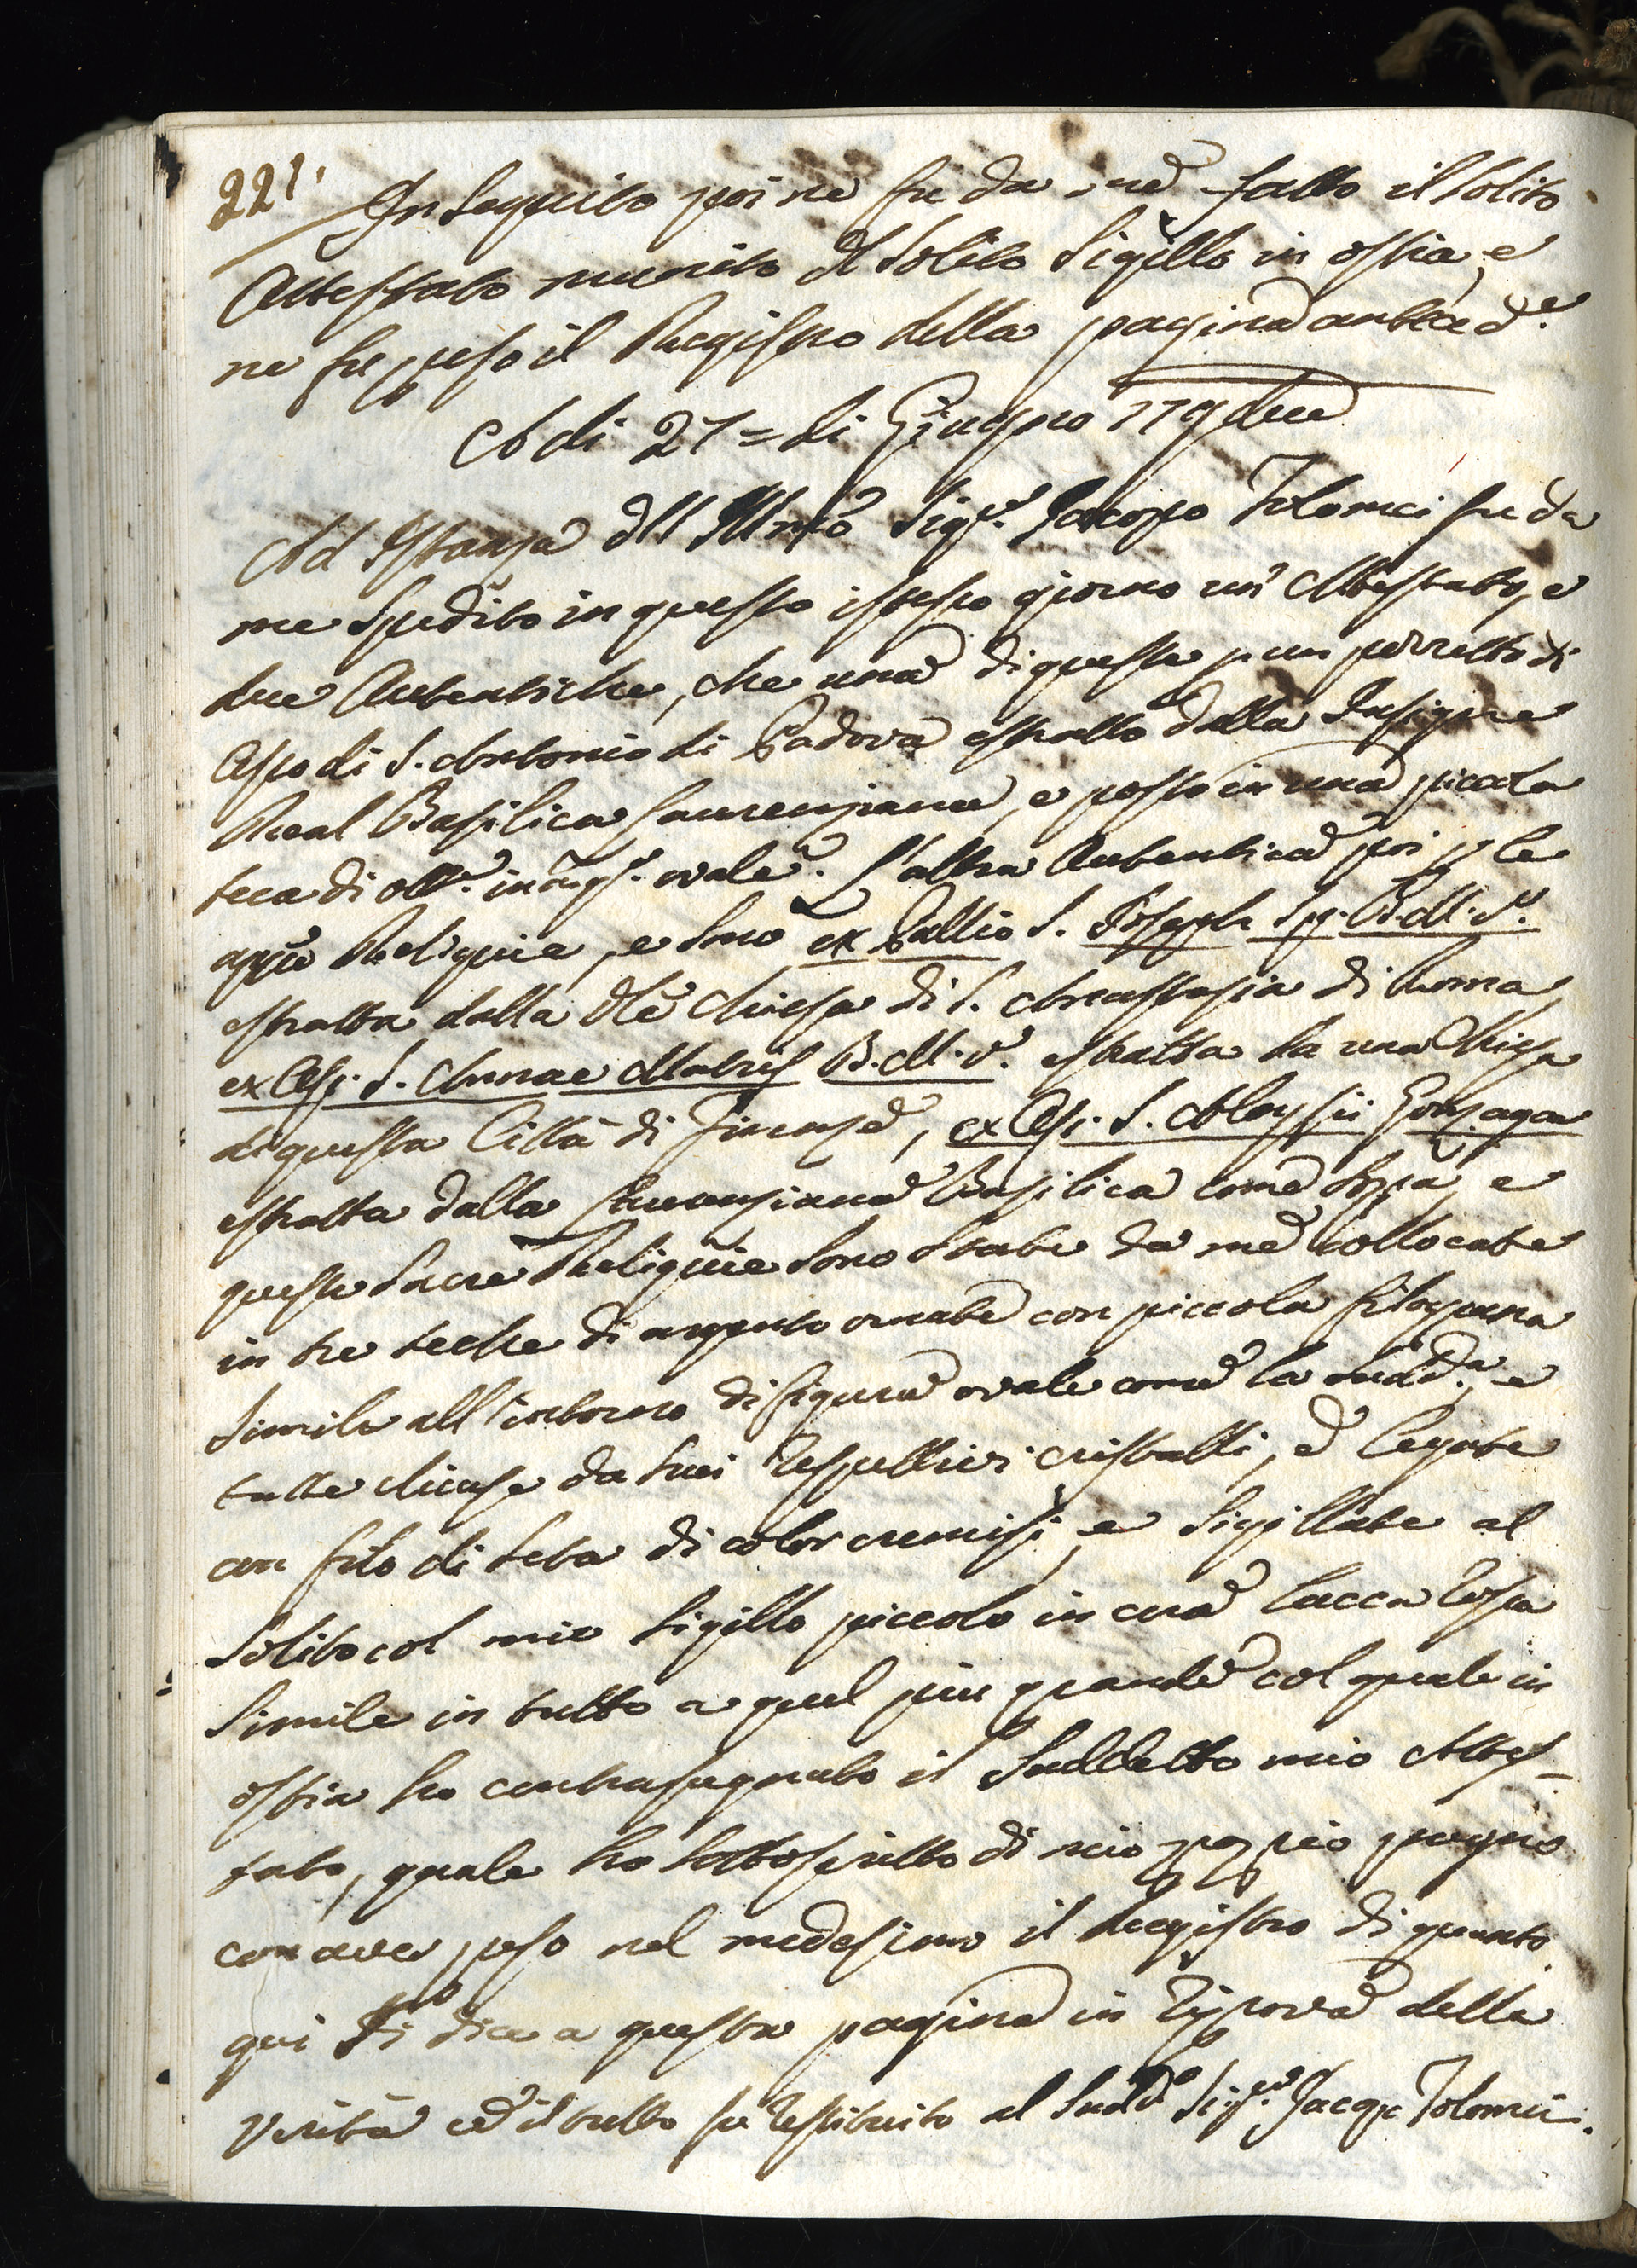 221.
In Seguito poi ne fu da me fatto il solito
Attestato munito del Solito Sigillo in ostia, e
ne fu preso il Registro della pagina anteced.e
A di 27 = di Giugno
Ad Istanza dll Illmo Sigr. Jacopo Tolomei fu da
me Spedito in questo istesso giorno un' Attestato, e
due Autentiche, che una di queste p un pezzetto di
Osso di S. Antonio di Padova estratto dalla Insigne
Real Basilica Laurenziana, e posto in una piccola
teca di ott.e ovale. L'altra Autentica poi p le
appo Reliquie, e sono ex Pallio S. Joseph Sp. B.M.V.
estratta dalla Chiesa di S. Anastasia di Roma,
ex Oss. S. Annae Matris B.M.V. estratta da una Chiesa
di questa Città di Firenze, ex Oss. S. Aloysii Gonzaga
estratta dalla Laurenziana Basilica come sopra, e
queste Sacre Reliquie sono state da me collocate
in tre teche di argento ornate con piccola filograna
simile all'intorno di figura ovale come la med.a, e
tutte chiuse da suoi respettivi cristalli, e legate
con filo di seta di color cremisi, e Sigillate al
Solito col mio Sigillo piccolo in cera lacca rossa
Simile in tutto a quel più grande col quale in
ostia ho contrasegnato il Suddetto mio Attes-
tato, quale ho sottoscritto di mio proprio pugno
con aver preso nel medesimo il Registro di quanto
qui si dice a questa pagina in riprova della
Verità ed il tutto fu restituito al Sudd.o Sigr. Jacopo Tolomei.